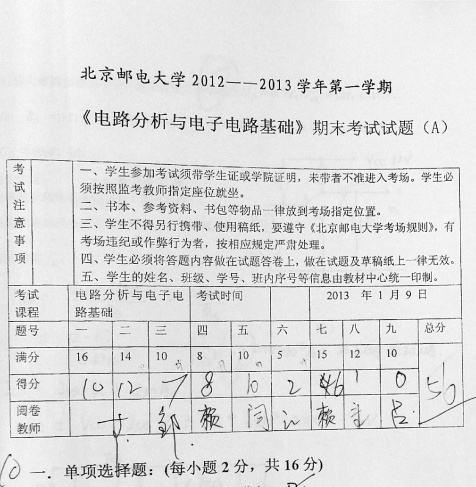 北京邮电大学 2012——2013 学年第一学期
《电路分析与电子电路基础》期末考试试题（A）
考试注意事项
一、学生参加考试须带学生证或学院证明，未带者不准进入考场。学生必
须按照监考教师指定座位就坐。
二、书本、参考资料、书包等物品一律放到考场指定位置。
三、学生不得另行携带、使用稿纸，要遵守《北京邮电大学考场规则》，有
考场违纪或作弊行为者，按相应规定严肃处理。
四、学生必须将答题内容做在试题答卷上，做在试题及草稿纸上一律无效。
五、学生的姓名、班级、学号、班内序号等信息由教材中心统一印制。
考试课程 电路分析与电子电路基础 考试时间 2013 年 1 月 9 日
题号 一 二 三 四 五 六 七 八 九 总分
满分 16 14 10 8 10 5 15 12 10
得分 10 12 7 8 10 2 6 1 0 56
阅卷教师 邹 赖 闫 赖 吕
10 一．单项选择题：(每小题 2 分，共 16 分)